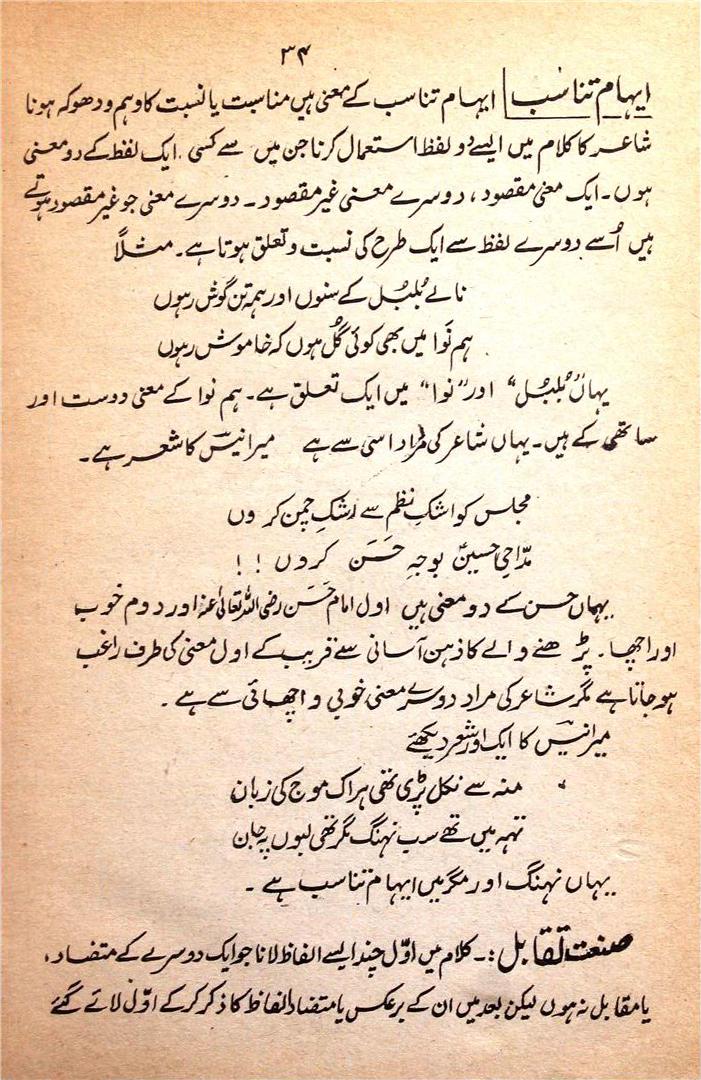 ۳۴
ایہام تناسب ایہام تناسب کے معنی ہیں مناسبت یا نسبت کا وہم و دھوکہ ہونا
شاعر کا کلام میں ایسے دو لفظ استعمال کرنا جن میں سے کسی ایک لفظ کے دو معنی
ہوں۔ ایک معنی مقصود، دوسرے معنی غیر مقصود۔ دوسرے معنی جو غیر مقصود ہوتے
ہیں اُسے دوسرے لفظ سے ایک طرح کی نسبت و تعلق ہوتا ہے۔ مثلاً
نالے بُلبُل کے سنوں اور ہمہ تن گوش رہوں
ہم نَوا میں بھی کوئی گُل ہوں کہ خاموش رہوں
یہاں "بُلبُل" اور "نوا" میں ایک تعلق ہے۔ ہم نوا کے معنی دوست اور
ساتھی کے ہیں۔ یہاں شاعر کی مُراد اسی سے ہے میر انیسؔ کا شعر ہے۔
مجلس کو اشکِ نظم سے رشکِ چمن کروں
مدّاحیِ حسینؑ بوجہِ حَسَن کروں !!
یہاں حسن کے دو معنی ہیں اول امام حَسَن رضی اللہ تعالیٰ عنہ اور دوم خوب
اور اچھا۔ پڑھنے والے کا ذہن آسانی سے قریب کے اول معنی کی طرف راغب
ہو جاتا ہے مگر شاعر کی مراد دوسرے معنی خوبی و اچھائی سے ہے۔
میر انیسؔ کا ایک اور شعر دیکھئے
منہ سے نکل پڑی تھی ہر اک موج کی زبان
تہہ میں تھے سب نہنگ مگر تھی لبوں پہ جان
یہاں نہنگ اور مگر میں ایہام تناسب ہے۔
صنعت تقابل :۔ کلام میں اوّل چند ایسے الفاظ لانا جو ایک دوسرے کے متضاد،
یا مقابل نہ ہوں لیکن بعد میں ان کے برعکس یا متضاد الفاظ کا ذکر کر کے اوّل لائے گئے